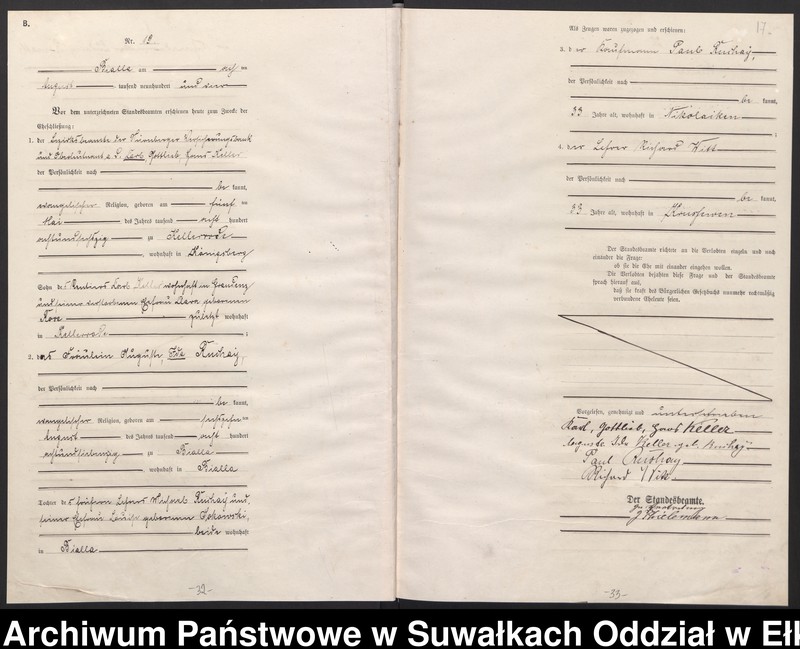 B.
Nr. 19.
Bialla am acht ten
August tausend neunhundert und vier
Vor dem unterzeichneten Standesbeamten erschienen heute zum Zweck der
Eheschließung:
1. der Bezirksbeamte der Nürnberger Versicherungsbank
und Oberleutnant a. D. Karl Gottlieb Hans Keller
der Persönlichkeit nach
be kannt,
evangelischer Religion, geboren am fünf ten
Mai des Jahres tausend acht hundert
zu Kellerrode
, wohnhaft in Königsberg
Sohn des Rentiers Karl Keller wohnhaft in Graudenz
und seiner verstorbenen Ehefrau Clara geborenen
zuletzt wohnhaft
in Kellerrode ;
2. das Fräulein Auguste, Ida Ruchay,
der Persönlichkeit nach
be kannt,
evangelischer Religion, geboren am ten
August des Jahres tausend acht hundert
achtundsiebenzig zu Bialla
, wohnhaft in Bialla
Tochter des früheren Lehrers Ruchay und
seiner Ehefrau Louise geborenen
beide wohnhaft
in Bialla
-32-
17.
Als Zeugen waren zugezogen und erschienen:
3. der Kaufmann Paul Ruchay,
der Persönlichkeit nach
be kannt,
33 Jahre alt, wohnhaft in Nikolaiken
;
4. der Lehrer Richard Witt
der Persönlichkeit nach
be kannt,
33 Jahre alt, wohnhaft in
Der Standesbeamte richtete an die Verlobten einzeln und nach
einander die Frage:
ob sie die Ehe mit einander eingehen wollen.
Die Verlobten bejahten diese Frage und der Standesbeamte
sprach hierauf aus,
daß sie kraft des Bürgerlichen Gesetzbuchs nunmehr rechtmäßig
verbundene Eheleute seien.
Vorgelesen, genehmigt und unterschrieben
Karl, Gottlieb, Hans Keller
Auguste Ida Keller geb. Ruchay
Paul Ruchay
Richard Witt
Der Standesbeamte.
In Vertretung
-33-
Archiwum Państwowe w Suwałkach Oddział w Ełk